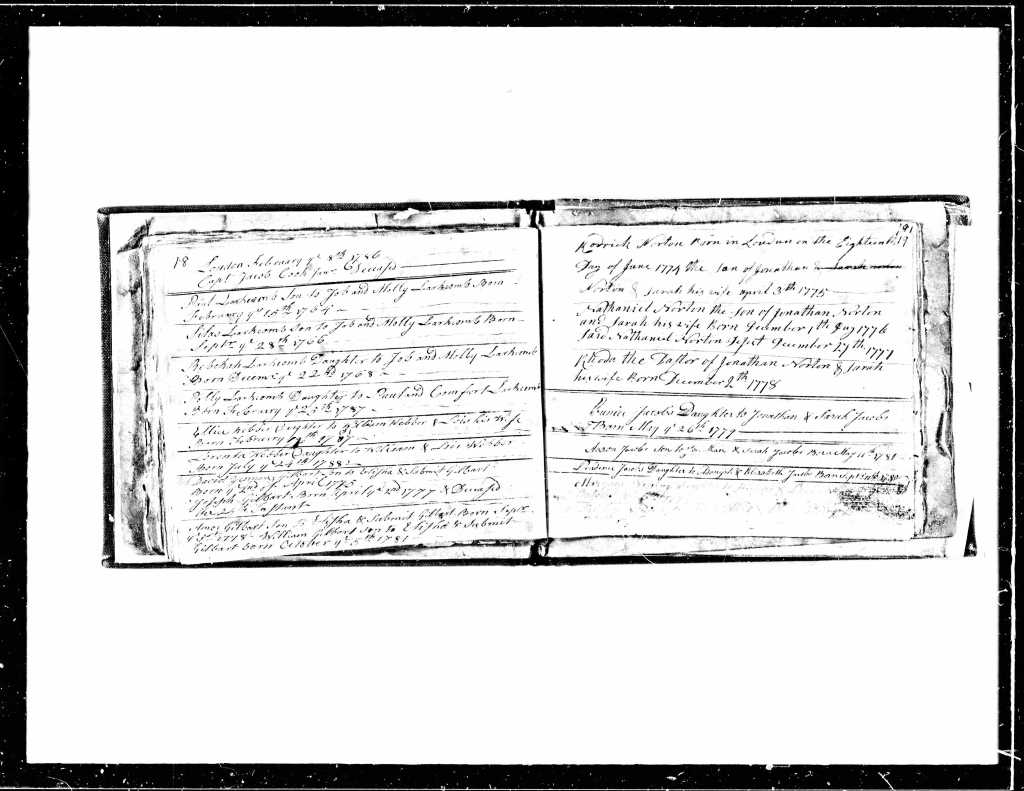 18 Loudon February ye 8th 1786
Capt Jacob Cook Junr Deceasd
Paul Larkcomb Son to Job and Molly Larkcomb Born
February ye 15th 1764
Silas Larkcomb Son to Job and Molly Larkcomb Born
Septr ye 28th 1766
Rebekah Larkcomb Daughter to Job and Molly Larkcomb
Born Decemr ye 22nd 1768
Polly Larkcomb Daughter to Paul and Comfort Larkcomb
Born February ye 25th 1787
Webber Daughter to William Webber & Lois his Wife
Born February 1787
Lorenda Webber Daughter to William & Lois Webber
Born July ye 24th 1788
Gilbart Son to Elisha & Submit Gilbart
Born ye 2nd of April 1775
Gilbart Born April ye 2nd 1777 & Deceasd
Amos Gilbart Son to Elisha & Submit Gilbart Born Septr
1778 William Gilbart Son to Elisha & Submit
Gilbart Born October ye 5th 1781
19
Rodrick Norton Born in Loudon on the Eighteenth
Day of June 1774 the Son of Jonathan & Sarah Norton
Norton & Sarah his wife April 3th 1775
Nathaniel Norton the Son of Jonathan Norton
and Sarah his wife Born December 1th Day 1776
Said Nathanel Norton December 17th 1777
Rhoda the Dattor of Jonathan Norton & Sarah
his wife Born December 9th 1778
Eunice Jacobs Daughter to Jonathan & Sarah Jacobs
Born May ye 26th 1779
Son to & Sarah Jacobs Born May 1781
Jacobs Daughter to & Elizabeth Jacobs Born Sept